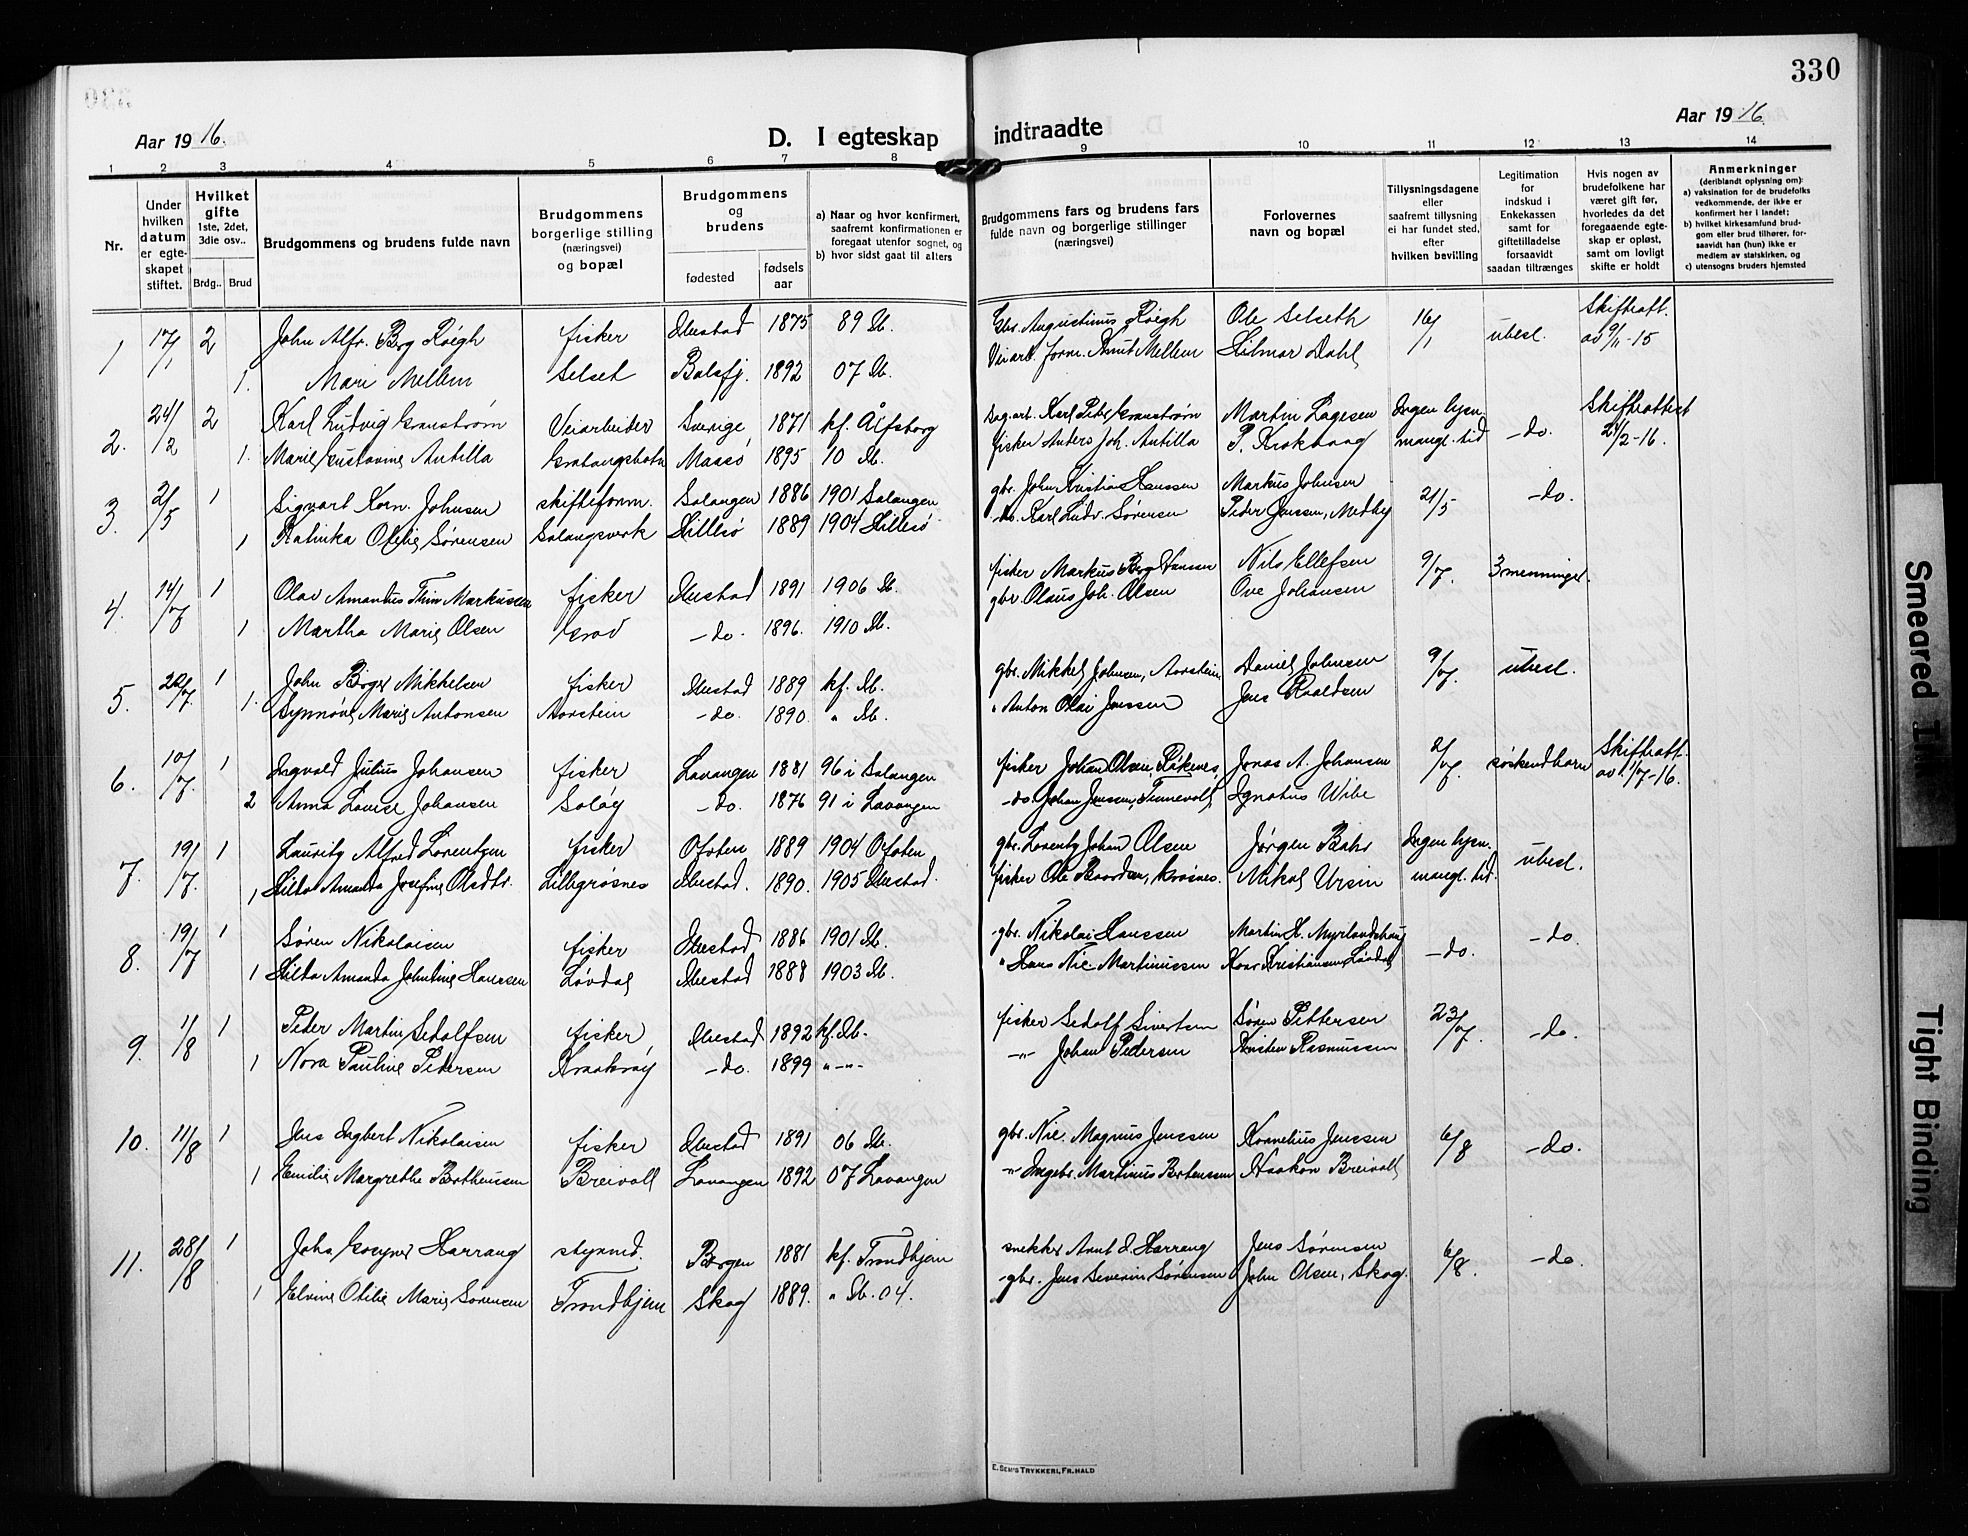 330
Aar 1916.
D. I egteskap indtraadte
Aar 1916.
1 2 3 4 5 6 7 8 9 10 11 12 13 14
Nr.
Under hvilken datum er egteskapet stiftet.
Hvilket gifte 1ste, 2det, 3die osv..
Brdg.. Brud
Brudgommens og brudens fulde navn
Brudgommens borgerlige stilling (næringsvei) og bopæl
Brudgommens og brudens
fødested
fødsels aar
a) Naar og hvor konfirmert, saafremt konfirmationen er foregaat utenfor sognet, og
b) hvor sidst gaat til alters
Brudgommens fars og brudens fars fulde navn og borgerlige stillinger (næringsvei)
Forlovernes navn og bopæl
Tillysningsdagene eller saafremt tillysning ei har fundet sted, efter hvilken bevilling
Legitimation for indskud i Enkekassen samt for giftetilladelse forsaavidt saadan tiltrænges
Hvis nogen av brudefolkene har været gift før, hvorledes da det foregaaende egteskap er opløst, samt om lovligt skifte er holdt
Anmerkninger
(deriblandt oplysning om):
a) vaksination for de brudefolks vedkommende, der ikke er konfirmert her i landet;
b) hvilket kirkesamfund brudgom eller brud tilhører, forsaavidt han (hun) ikke er medlem av statskirken, og
c) utensogns bruders hjemsted
1 17/1 2 John Alfr. Berg Røegh fisker Ibestad 1875 89 Ib. Gbr. Augustinus Røegh Ole Selseth 16/1 ubesl. Skifteatt. av 9/11-15
1. Mari Mellem Selset Balsfj. 1892 07 Ib. Veiarb. form. Knut Mellem Hilmar Dahl
2. 24/2 2 Karl Ludvig Granstrøm Veiarbeider Sverige 1871 kf. Ålfsborg Dag.arb. Karl Peter Granstrøm Martin Lagesen Ingen lysn. mangl. tid -do. Skifteattest 24/2-16.
1. Marie Gustavine Antilla Gratangsbotn Massø 1895 10 Ib. fisker Anders Joh. Antilla P. Krokhaug
3. 2/5 1 Sigvart Korn. Johnsen skifteform. Salangen 1886 1901 Salangen gbr. John Kristian Hanssen Markus Johnsen 21/5 -do.
1 Kalinka Otelie Sørensen Salangsverk Hillesø 1889 1904 Hillesø -do. Karl Ludv. Sørensen Peder Jenssen, Medby
4. 14/7 1 Olav Amandus Thin Markussen fisker Ibestad 1891 1906 Ib. fisker Markus Berg Hanssen Nils Ellefsen 9/7. 3menninger.
1 Martha Marie Olsen Grov -do. 1896. 1910 Ib. gbr. Olaus Joh. Olsen Ove Johansen
5. 22/7. 1 John Birger Mikkelsen fisker Ibestad 1889 kf. Ib. gbr. Mikkel Johnsen, Aarstein Daniel Johnsen 9/7. ubesl.
1. Synnøve Marie Antonsen Aarstein -do. 1890. " Ib. " Anton Olai Jenssen Jens Roaldsen
6. 10/7. 1 Ingvald Julius Johansen fisker Lavangen 1881 96 i Salangen fisker Johan Olsen, Røkenes Jonas A. Johansen 2/7. søskendbarn Skifteatt. av 1/7-16.
2 Anna Lovise Johansen Soløy -do. 1876 91 i Lavangen -do. Johan Jenssen, Tennevoll Ignatius Wibe
7. 19/7. 1 Lauritz Alfred Lorentzen fisker Ofoten 1889 1904 Ofoten gbr. Lorentz Johan Olsen Jørgen Bahr Ingen lysn. mangl. tid. ubesl.
1 Hilda Amanda Josefine Olsdtr. Lillegrøsnes Ibestad. 1890. 1905 Ibestad. fisker Ole Baardsen, Grøsnes. Mikal Ursin
8. 19/7 1 Søren Nikolaisen fisker Ibestad 1886 1901 Ib. gbr. Nikolai Hanssen Martin H. Myrlandshaug -do. -do.
1 Hilda Amanda Johntine Hanssen Løvdal Ibestad 1888 1903 Ib. " Hans Nic. Martinussen Konr. Kristiansen, Løvdal
9. 1/8 1 Peder Martin Sedolfsen fisker Ibestad 1892 kf. Ib. fisker Sedolf Sivertsen Søren Pettersen 23/7. -do.
1 Nora Pauline Pedersen Kraakrøy -do. 1899 " -"- -"- Johan Pedersen Kristen Rasmussen
10. 11/8 1 Jens Ingbert Nikolaisen fisker Ibestad 1891 06 Ib. gbr. Nic. Magnus Jenssen Kornelius Jenssen 6/8 -do.
1 Emilie Margrethe Bertheussen Breivoll Lavangen 1892 07 Lavangen -"- Ingebr. Martinus Bertenssen Haakon Breivoll
11. 28/8 1 Joha Gosyner Harrang styrmd. Bergen 1881 kf. Trondhjem snekker Arnt d. Harrang Jens Sørensen 6/8. -do.
1 Elvine Otilie Marie Sørensen Trondhjem Skog 1889. " Ib. 04. gbr. Jens Severin Sørensen John Olsen, Skog.
E. SEM'S TRYKKERI, FR.HALD
Smeared Ink
Tight Binding